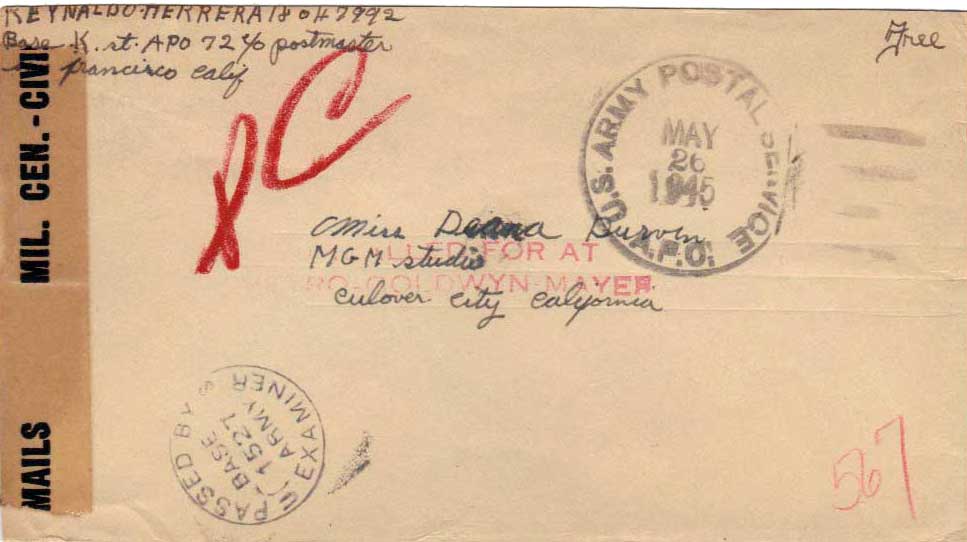 REYNALDO HERRERA 18047992
Base K. st. APO 72 c/o postmaster
francisco calif
Free
MIL. CEN.-CIVI
MAILS
PC
U.S. ARMY POSTAL SERVICE
MAY
26
1945
A.P.O.
Miss Deana Durven
LLED FOR AT
MGM studio
RO-GOLDWYN-MAYER
Culover City California
PASSED BY
BASE
1527
ARMY
EXAMINER
567